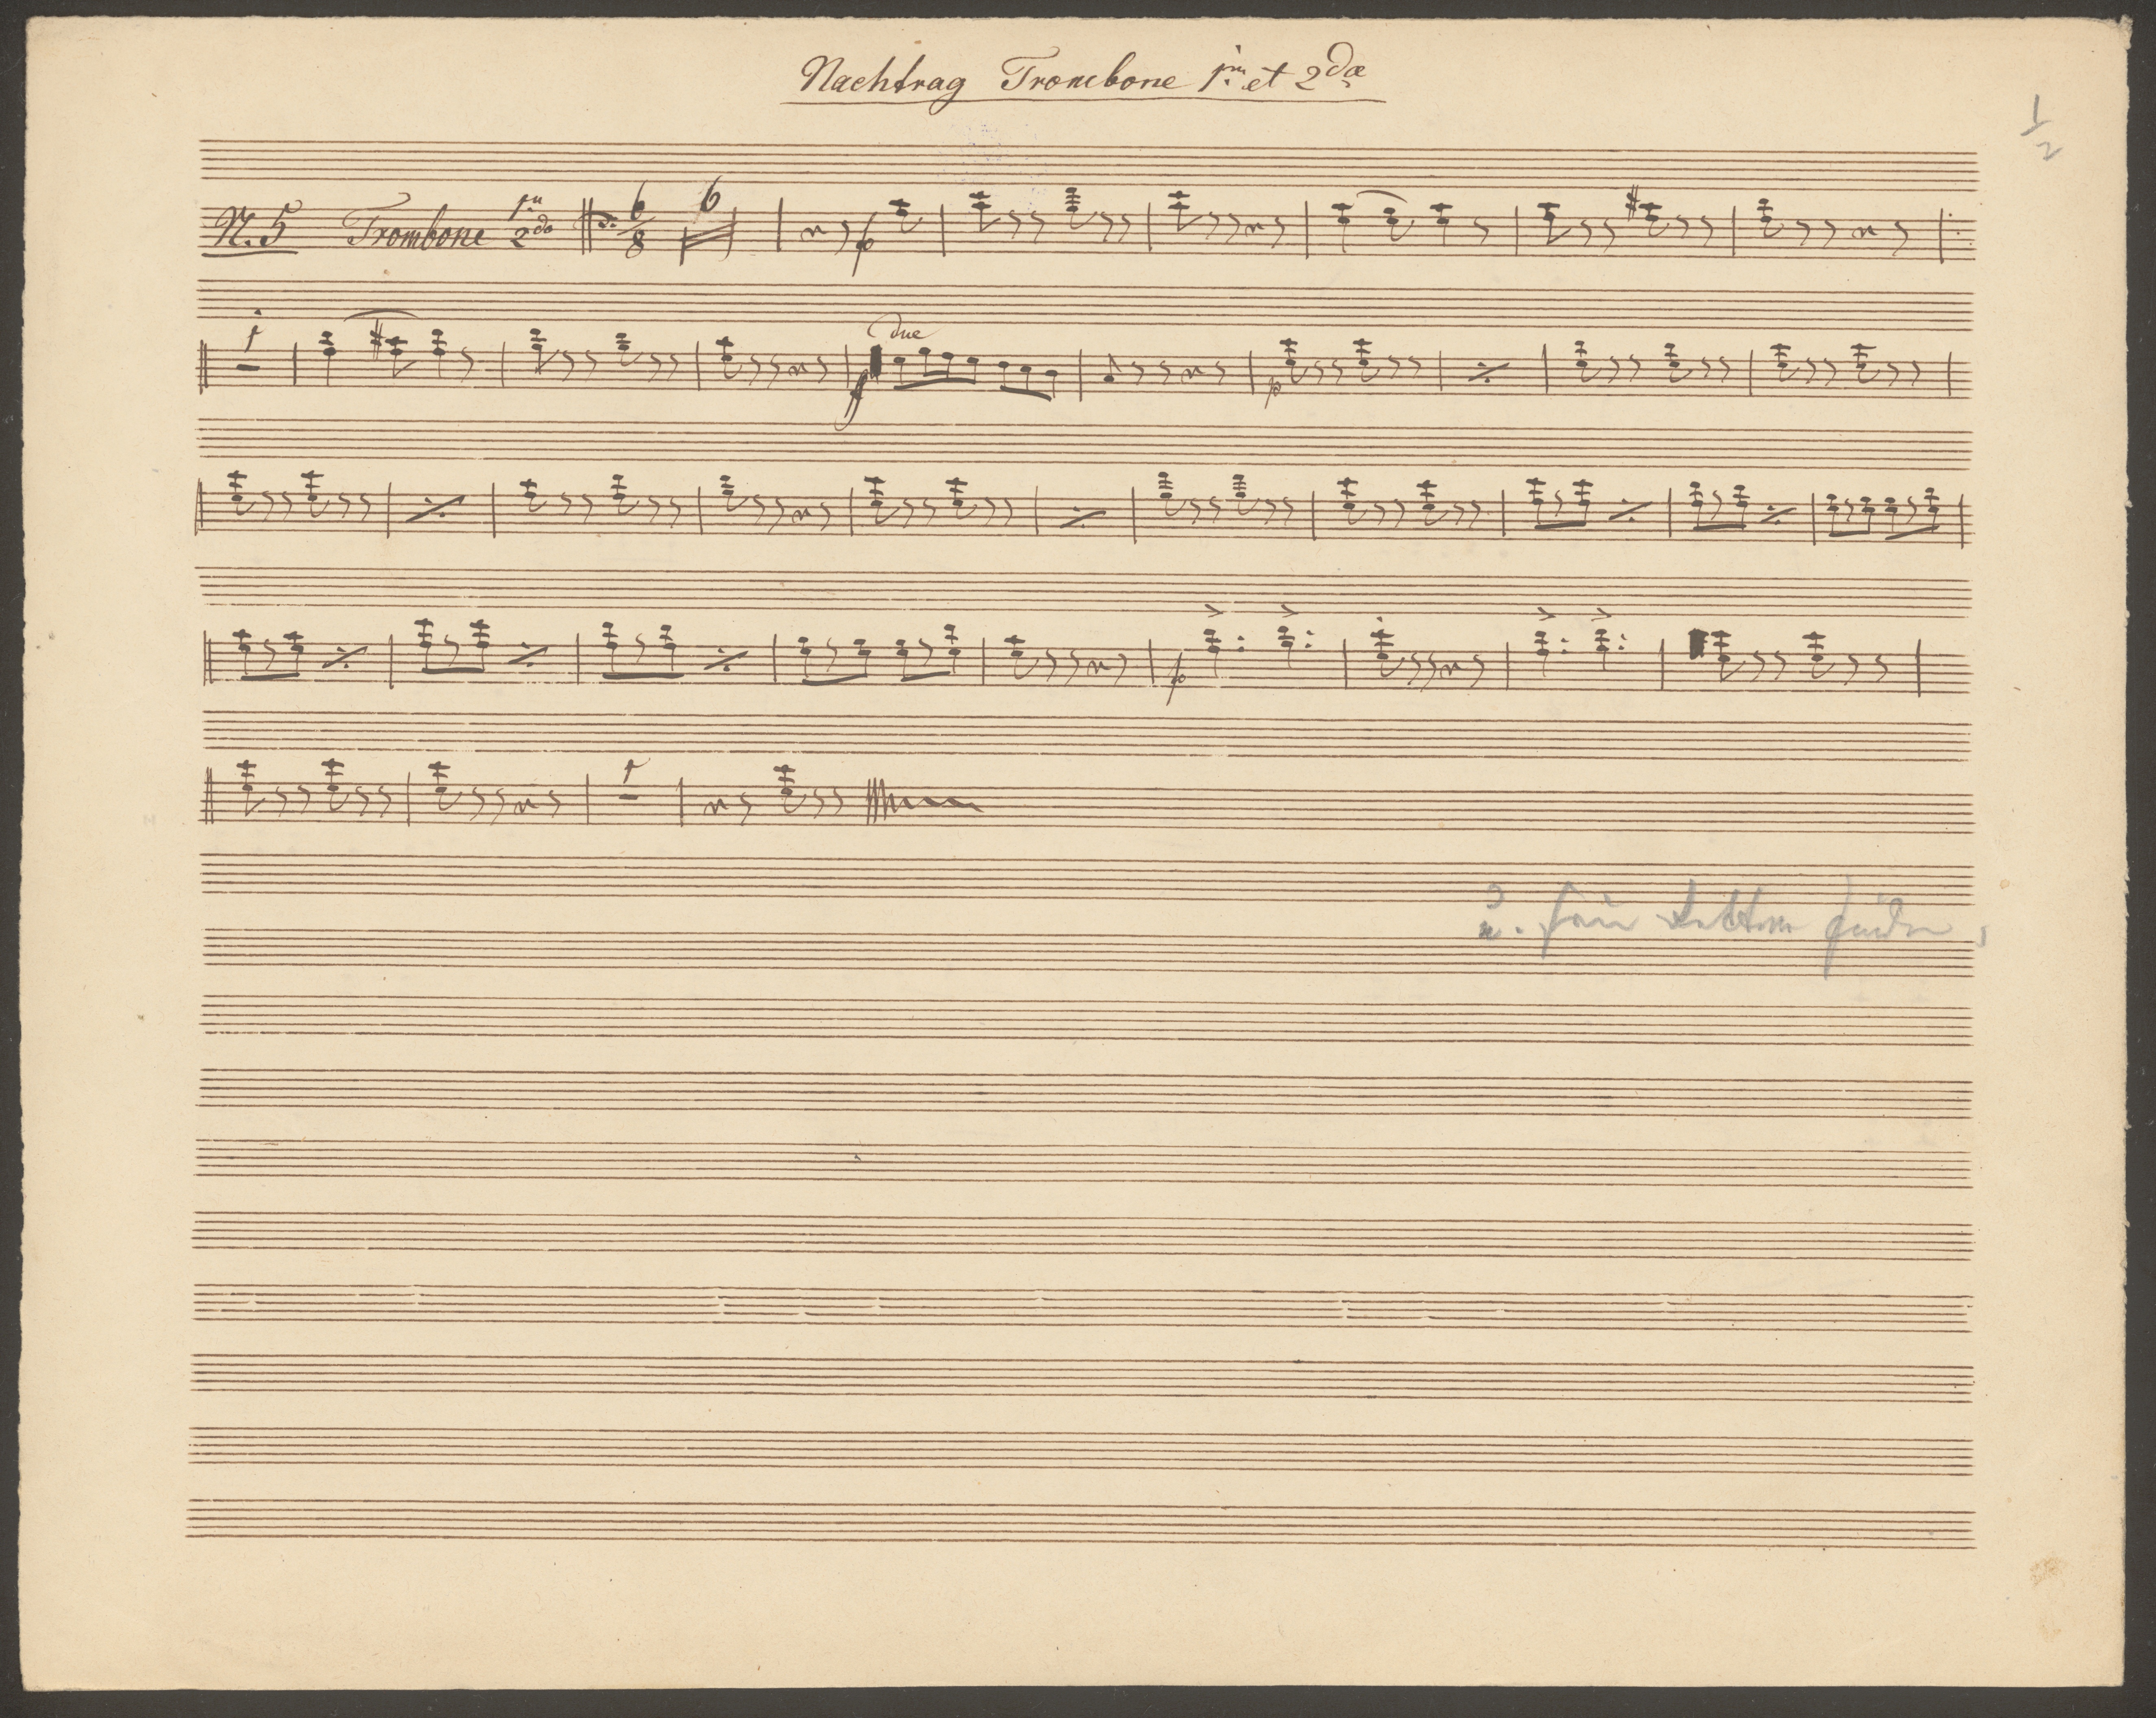 Nachtrag Trombone 1mo et 2do
1/2
N. 5 Trombone 1mo 2do 6/8 6
p
1
due
f
p
p
1